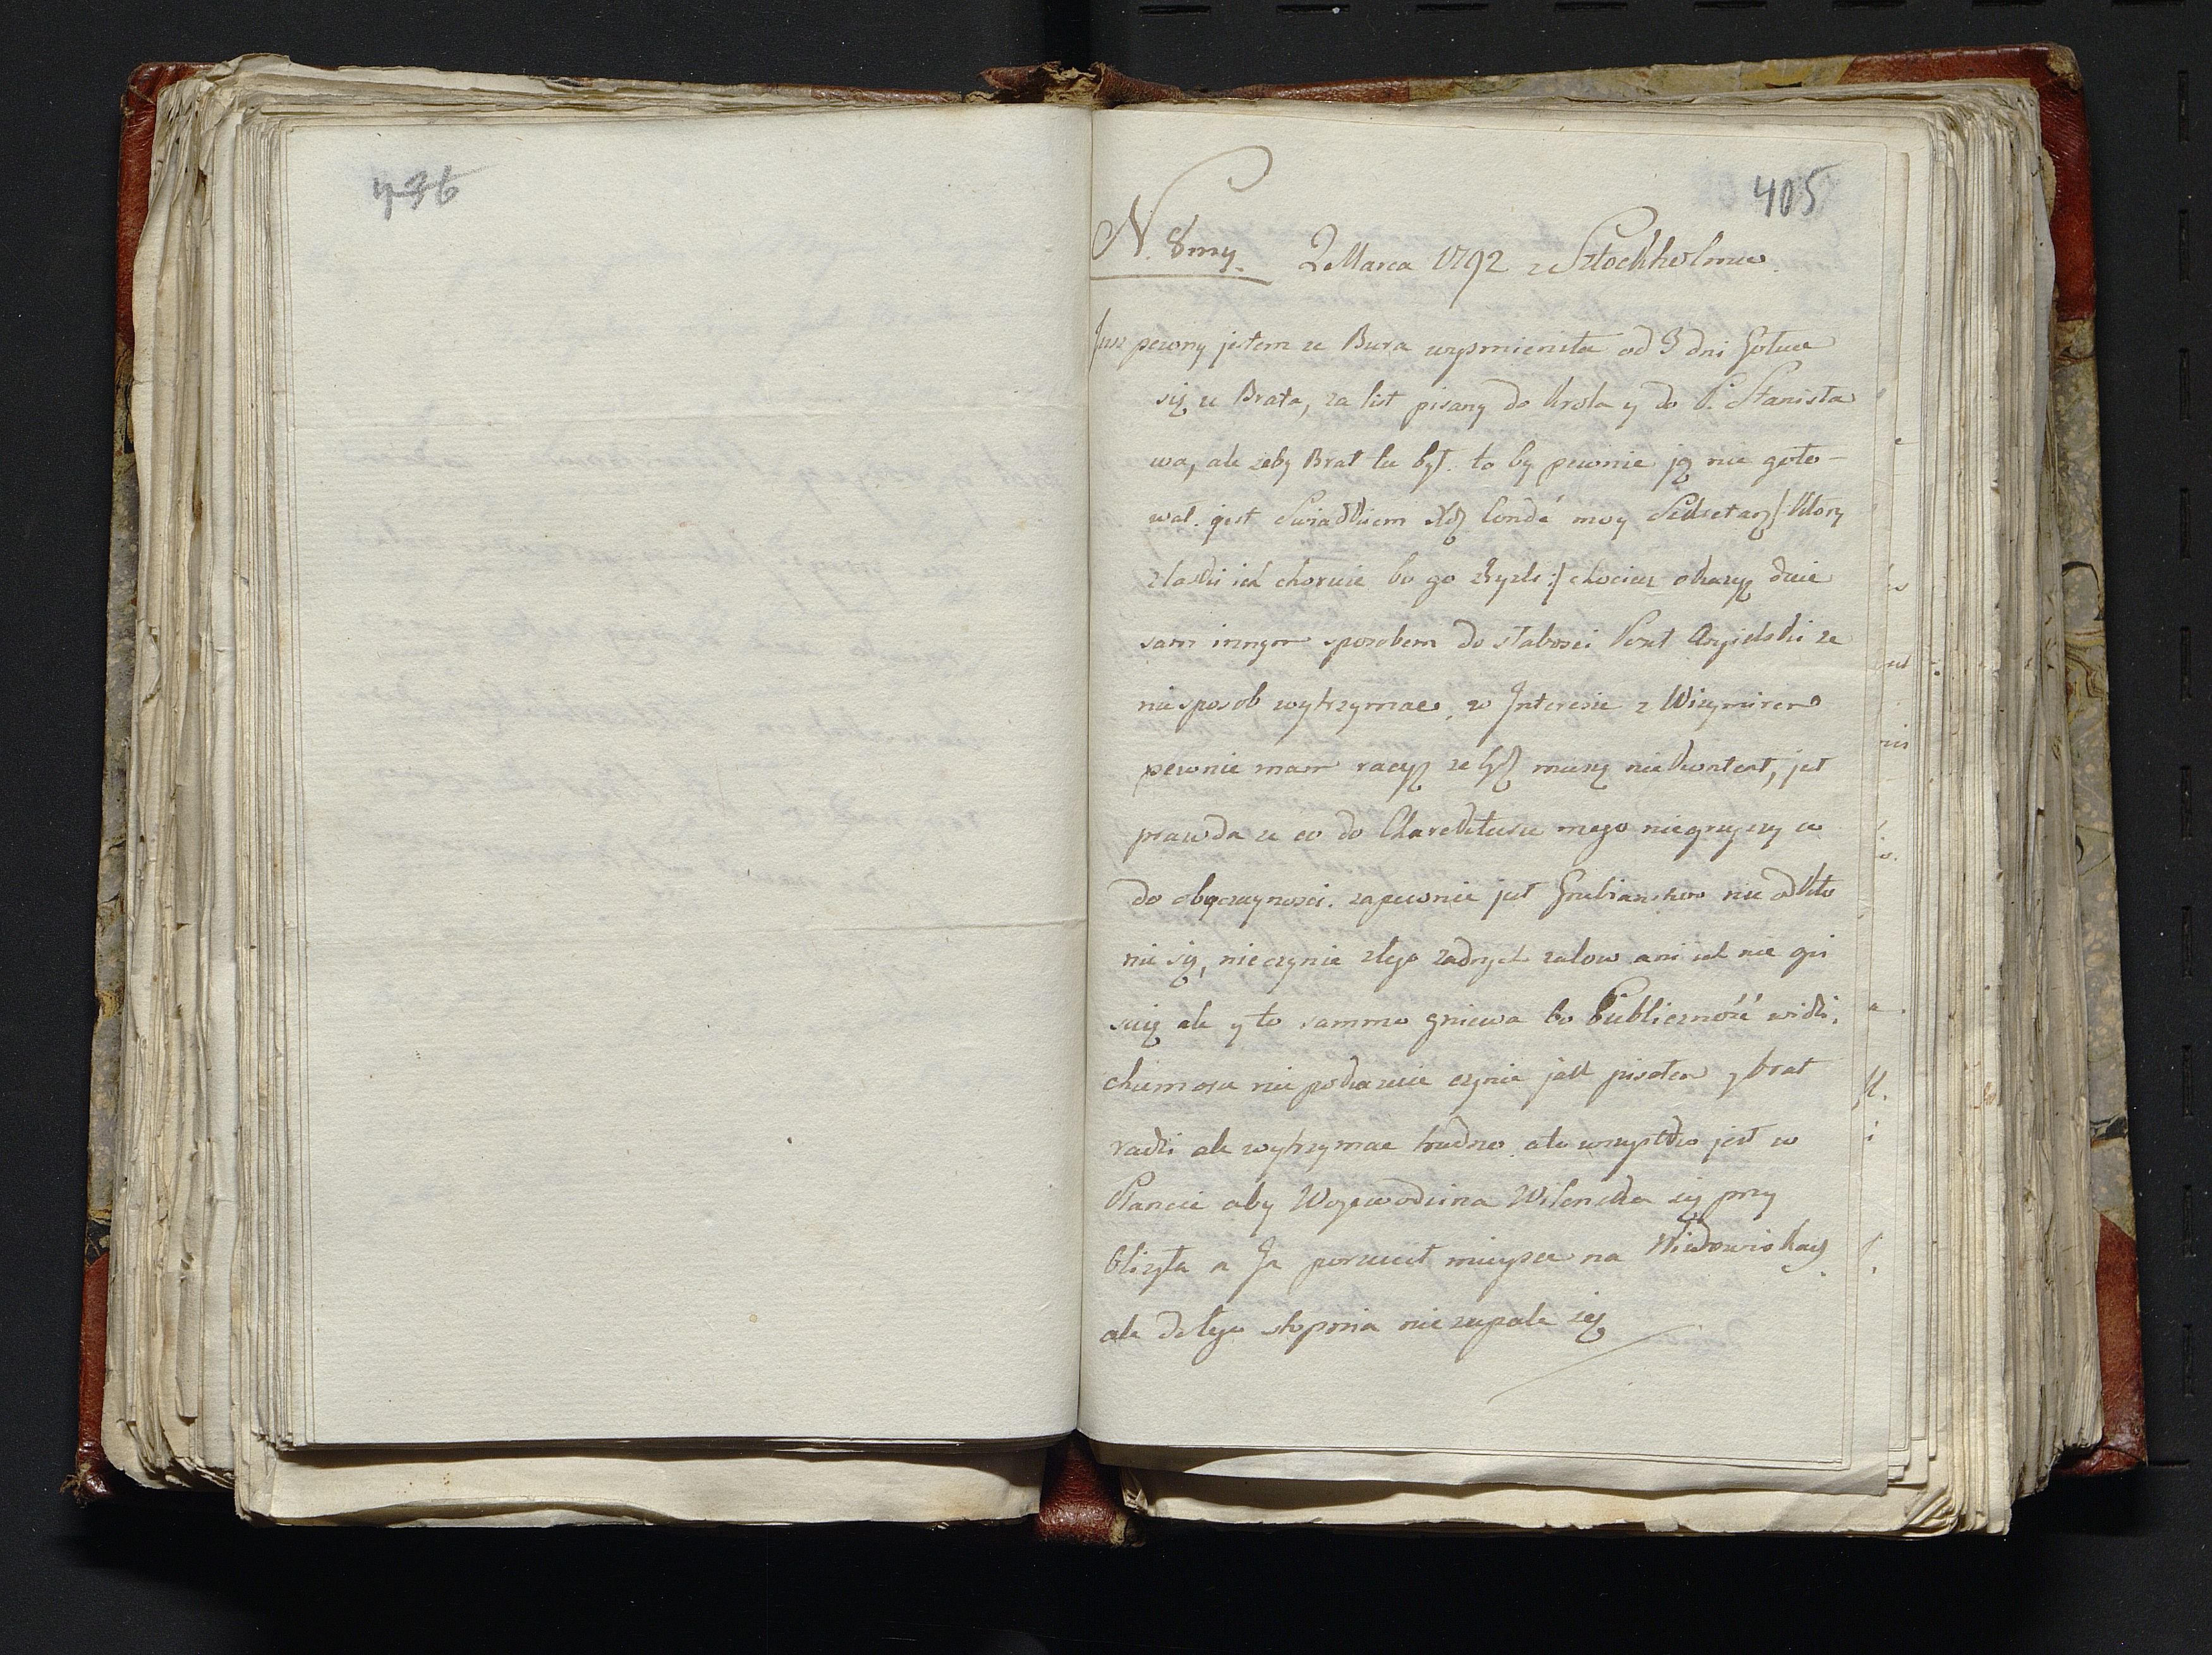 436
405
N. 8my. 2 Marca 1792 z Sztockholmu.
Jusz pewny jestem ze Bura wysmienita od 3 dni Gotuie
się u Brata, za list pisany do Krola y do P. Stanisła
wa, ale zeby Brat tu był. to by pewnie ją nie goto-
wał. jest Swiadkiem Xdz Condé moy Sekretarz /: Ktory
choruie bo go :/ chociasz okazyę daie
sam innym sposobem do słabosci Pont Angielski ze
nie sposob wytrzymac, w Interesie z
pewnie mam racyę ze bydz muszę nie Kontent, jest
prawda ze co do Charakteru mego niegrzeszy co
do obyczaynosci. zapewnie jest Grubianstwo nie od Kło
nie się, nie czynie z tego zadnych zalow ani ich nie pi
suię ale y to sammo gniewa bo Publiczność widzi,
chumoru nie pokazuie czynie jak pisałem y brat
radzi ale wytrzymac trudno. ale wszystko jest w
Plancie aby Woyewodzina Wilenska się przy
bliżyła a Ja porzucił mieysce na
ale do tego stopnia nie zapale się